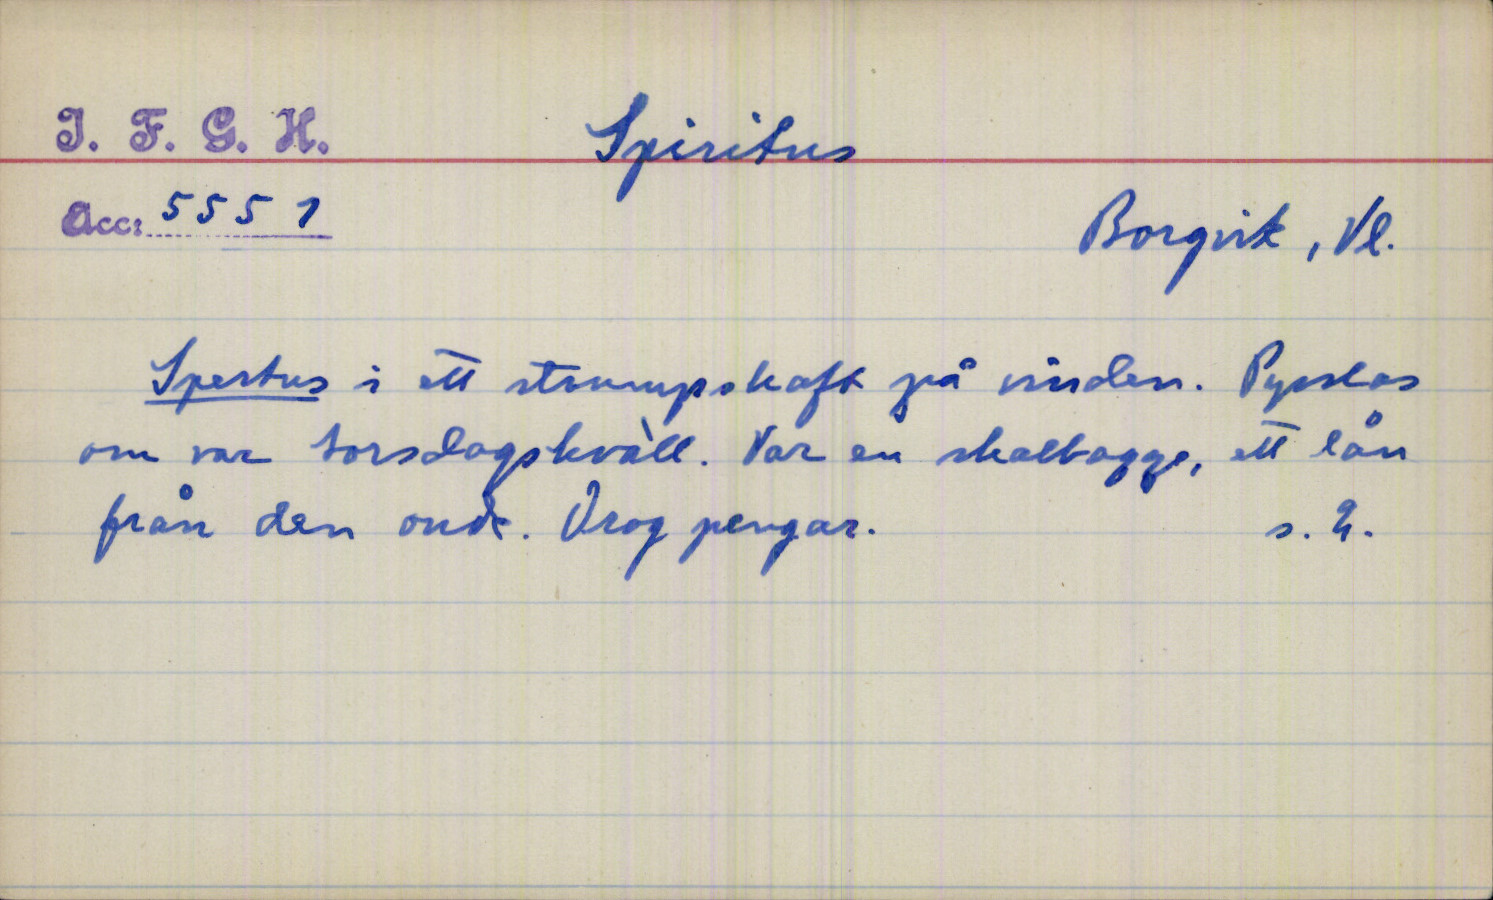 I. F. G. H.
Spiritus
Acc: 5551
Borgvik, Vl.
Spertus i ett strumpskaft på vinden. Pysslas
om var torsdagskväll. Var en skalbagge, ett lån
från den onde. Drog pengar.
s. 2.